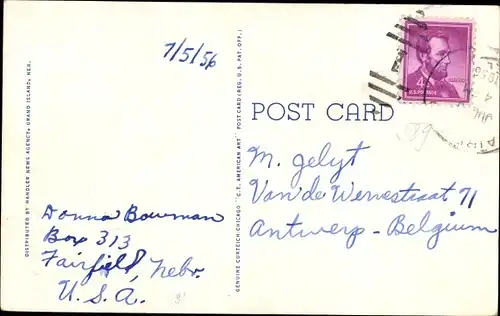 7/5/56
4¢
U.S. POSTAGE
POST CARD
M. Gelyt
Van de Wervestraat 71
Antwerp - Belgium
Donna Bowman
Box 313
Fairfield, Nebr.
U.S.A.
DISTRIBUTED BY HANDLER NEWS AGENCY, GRAND ISLAND, NEB.
GENUINE CURTEICH-CHICAGO "C.T. AMERICAN ART" POST CARD (REG. U.S. PAT. OFF.)